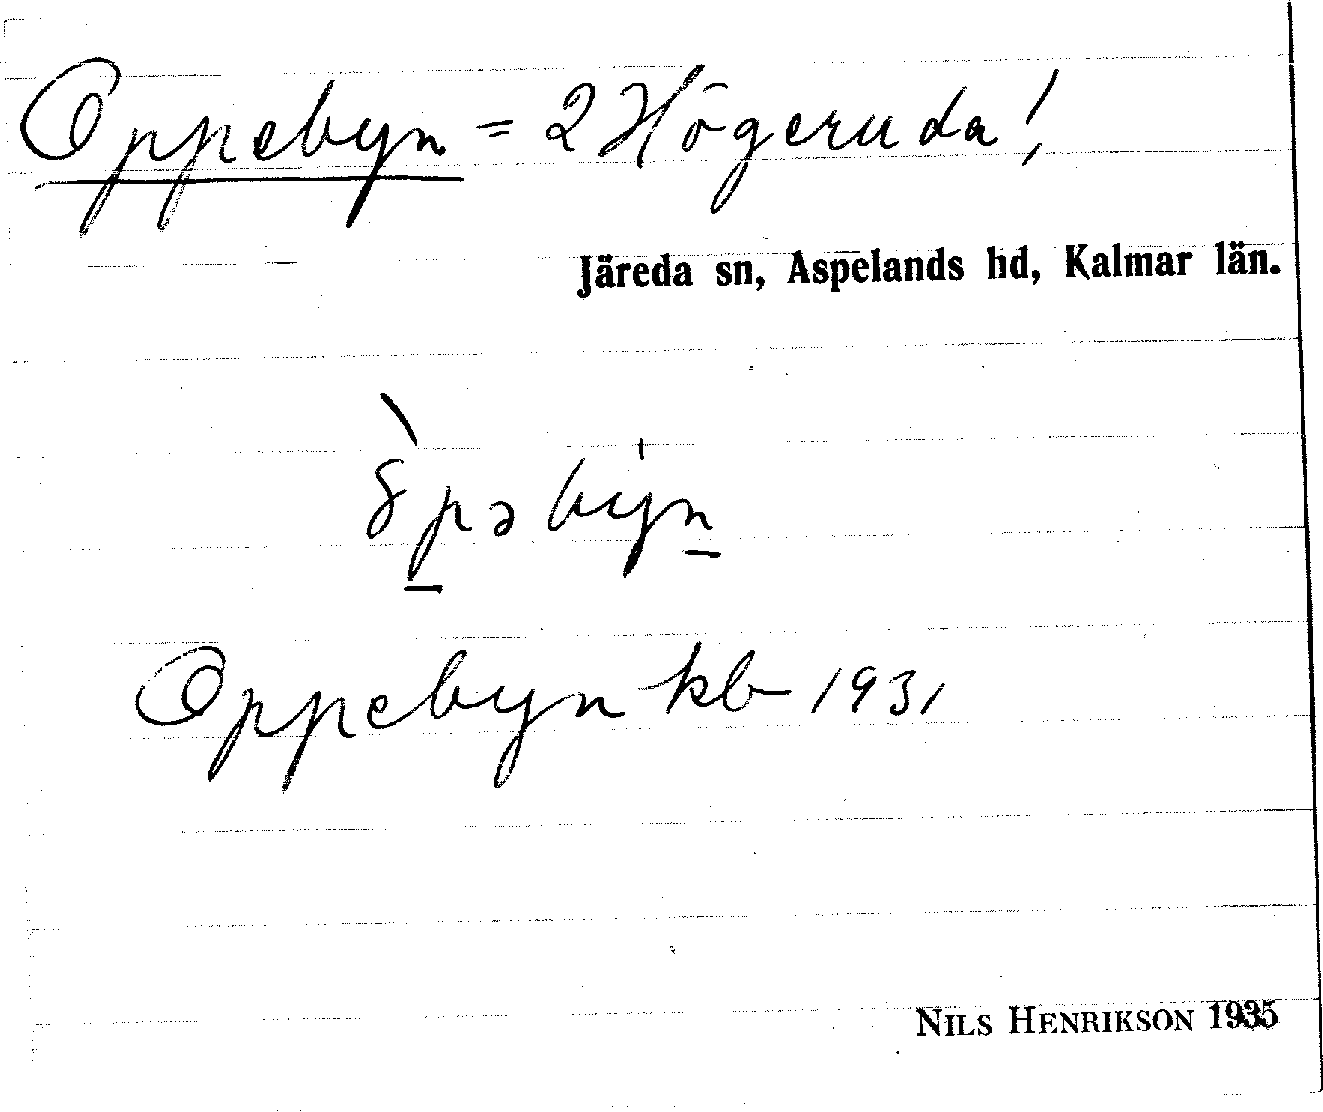 Oppebyn = 2 Högeruda!
Järeda sn, Aspelands hd, Kalmar län.
Oppebyn kb 1931
NILS HENRIKSON 1935